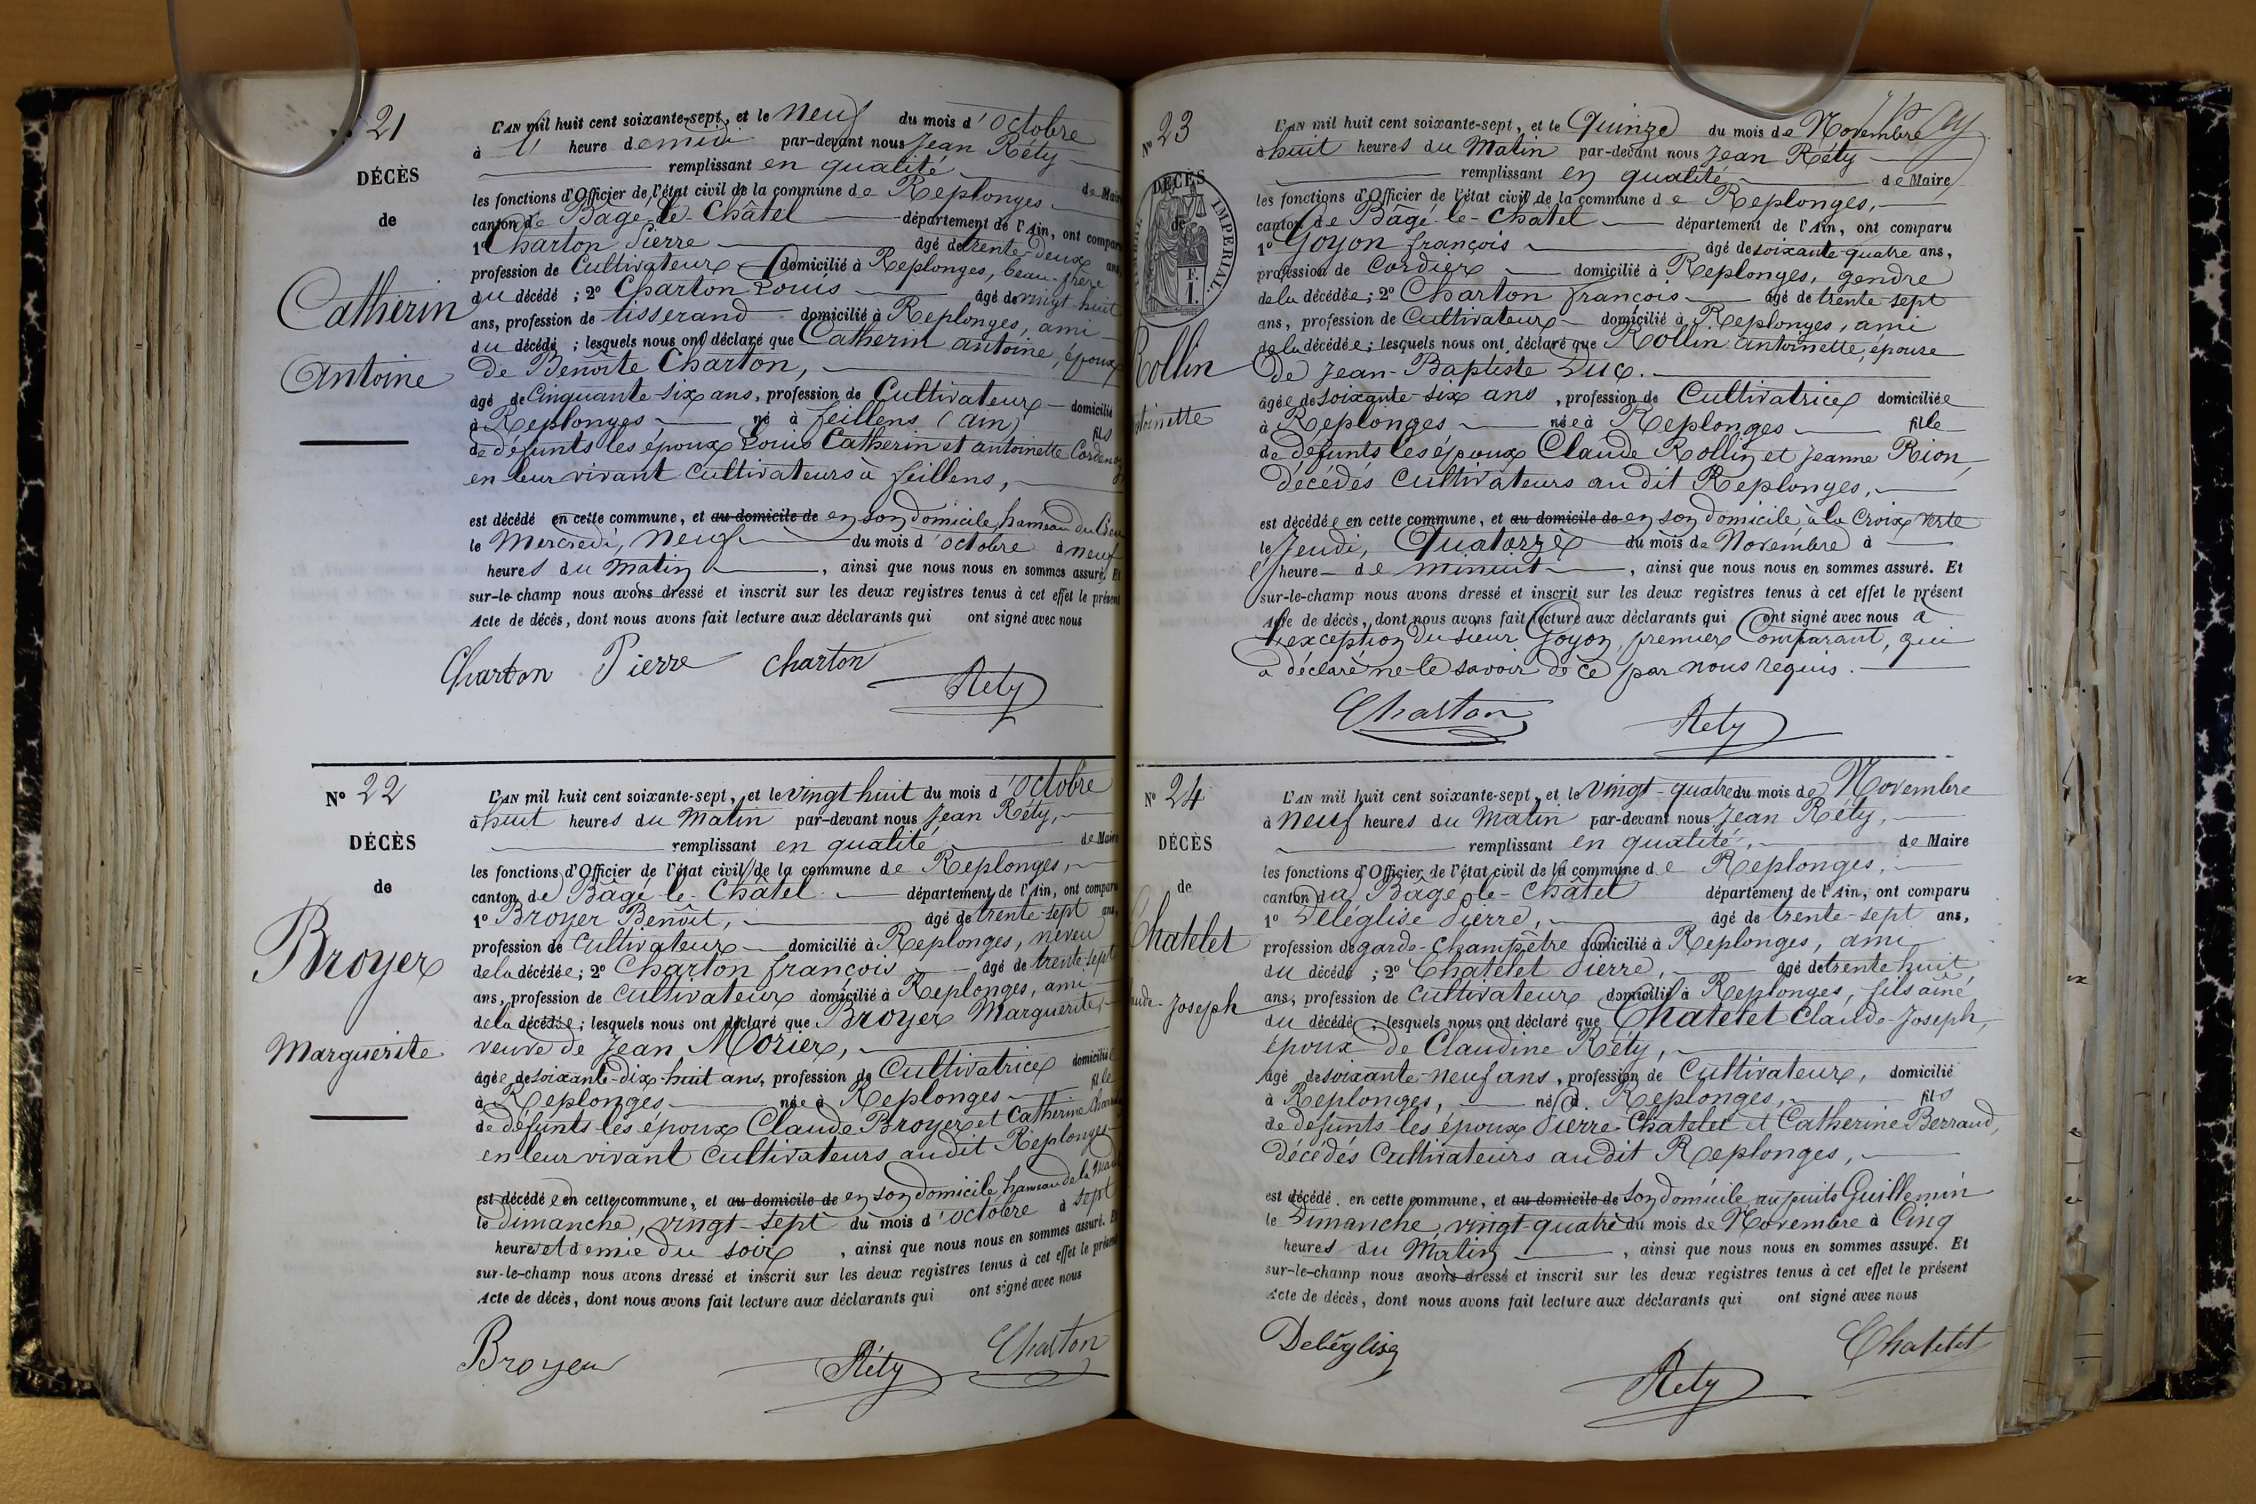 N° 21
DÉCÈS
de
Catherin
Antoine
L'AN mil huit cent soixante-sept, et le neuf du mois d'Octobre
à heure de midi par-devant nous Jean Réty
remplissant en qualité de Maire
les fonctions d'Officier de l'état civil de la commune de Replonges
canton de Bâgé-le-Châtel département de l'Ain, ont comparu
1° Charton Pierre âgé de trente-deux ans,
profession de Cultivateur domicilié à Replonges, beau-frère
du décédé ; 2° Charton Louis âgé de vingt huit
ans, profession de tisserand domicilié à Replonges, ami
du décédé ; lesquels nous ont déclaré que Catherin antoine, époux
de Benoîte Charton,
âgé de Cinquante six ans, profession de Cultivateur domicilié
à Replonges né à feillens (ain) fils
de défunts les époux Louis Catherin et antoinette
en leur vivant Cultivateurs à feillens,
est décédé en cette commune, et au domicile de en son domicile, hameau du
le Mercredi, neuf du mois d'octobre à neuf
heures du Matin , ainsi que nous nous en sommes assuré. Et
sur-le-champ nous avons dressé et inscrit sur les deux registres tenus à cet effet le présent
Acte de décès, dont nous avons fait lecture aux déclarants qui ont signé avec nous
Charton Pierre charton
Réty
N° 22
DÉCÈS
de
Broyer
Marguerite
L'AN mil huit cent soixante-sept, et le vingt huit du mois d'octobre
à huit heures du Matin par-devant nous Jean Réty,
remplissant en qualité de Maire
les fonctions d'Officier de l'état civil de la commune de Replonges,
canton de Bâgé-le-Châtel département de l'Ain, ont comparu
1° Broyer Benoît, âgé de trente-sept ans,
profession de cultivateur domicilié à Replonges, neveu
de la décédée ; 2° Charton françois âgé de trente-sept
ans, profession de cultivateur domicilié à Replonges, ami
de la décédée ; lesquels nous ont déclaré que Broyer Marguerite,
veuve de Jean Morier,
âgée de soixante-dix-huit ans, profession de Cultivatrice domiciliée
à Replonges née à Replonges fille
de défunts les époux Claude Broyer et Catherine
en leur vivant Cultivateurs audit Replonges
est décédée en cette commune, et au domicile de en son domicile, hameau de la
le Dimanche, vingt-sept du mois d'octobre à sept
heures et demie du soir , ainsi que nous nous en sommes assuré. Et
sur-le-champ nous avons dressé et inscrit sur les deux registres tenus à cet effet le présent
Acte de décès, dont nous avons fait lecture aux déclarants qui ont signé avec nous
Broyer Réty Charton
N° 23
DÉCÈS
de
TIMBRE IMPERIAL.
1 F.
Rollin
antoinette
L'AN mil huit cent soixante-sept, et le Quinze du mois de Novembre
à huit heures du Matin par-devant nous Jean Réty
remplissant en qualité de Maire
les fonctions d'Officier de l'état civil de la commune de Replonges,
canton de Bâgé-le-Châtel département de l'Ain, ont comparu
1° Goyon françois âgé de soixante-quatre ans,
profession de Cordier domicilié à Replonges, gendre
de la décédée ; 2° Charton françois âgé de trente sept
ans, profession de Cultivateur domicilié à Replonges, ami
de la décédée ; lesquels nous ont déclaré que Rollin antoinette, épouse
de Jean-Baptiste Duc.
âgée de soixante-six ans, profession de Cultivatrice domiciliée
à Replonges née à Replonges fille
de défunts les époux Claude Rollin et Jeanne Rion,
décédés Cultivateurs audit Replonges,
est décédée en cette commune, et au domicile de en son domicile, à la Croix verte
le Jeudi, Quatorze du mois de Novembre à
heure de minuit , ainsi que nous nous en sommes assuré. Et
sur-le-champ nous avons dressé et inscrit sur les deux registres tenus à cet effet le présent
Acte de décès, dont nous avons fait lecture aux déclarants qui ont signé avec nous à
l'exception du sieur Goyon, premier Comparant, qui
a déclaré ne le savoir de ce par nous requis.
Charton Réty
N° 24
DÉCÈS
de
Chatelet
Claude-Joseph
L'AN mil huit cent soixante-sept, et le Vingt-quatre du mois de Novembre
à neuf heures du Matin par-devant nous Jean Réty,
remplissant en qualité, de Maire
les fonctions d'Officier de l'état civil de la commune de Replonges,
canton de Bâgé-le-Châtel département de l'Ain, ont comparu
1° Deléglise Pierre, âgé de trente-sept ans,
profession de garde-champêtre domicilié à Replonges, ami
du décédé ; 2° Chatelet Pierre, âgé de trente huit
ans, profession de Cultivateur domicilié à Replonges, fils aîné
du décédé ; lesquels nous ont déclaré que Chatelet Claude-Joseph,
époux de Claudine Réty,
âgé de soixante-neuf ans, profession de Cultivateur, domicilié
à Replonges, né à Replonges, fils
de défunts les époux Pierre Chatelet et Catherine Berraud,
décédés Cultivateurs audit Replonges,
est décédé en cette commune, et au domicile de son domicile, au puits Guillemin
le Dimanche, vingt-quatre du mois de Novembre à Cinq
heures du Matin , ainsi que nous nous en sommes assuré. Et
sur-le-champ nous avons dressé et inscrit sur les deux registres tenus à cet effet le présent
Acte de décès, dont nous avons fait lecture aux déclarants qui ont signé avec nous
Deléglise Réty Chatelet